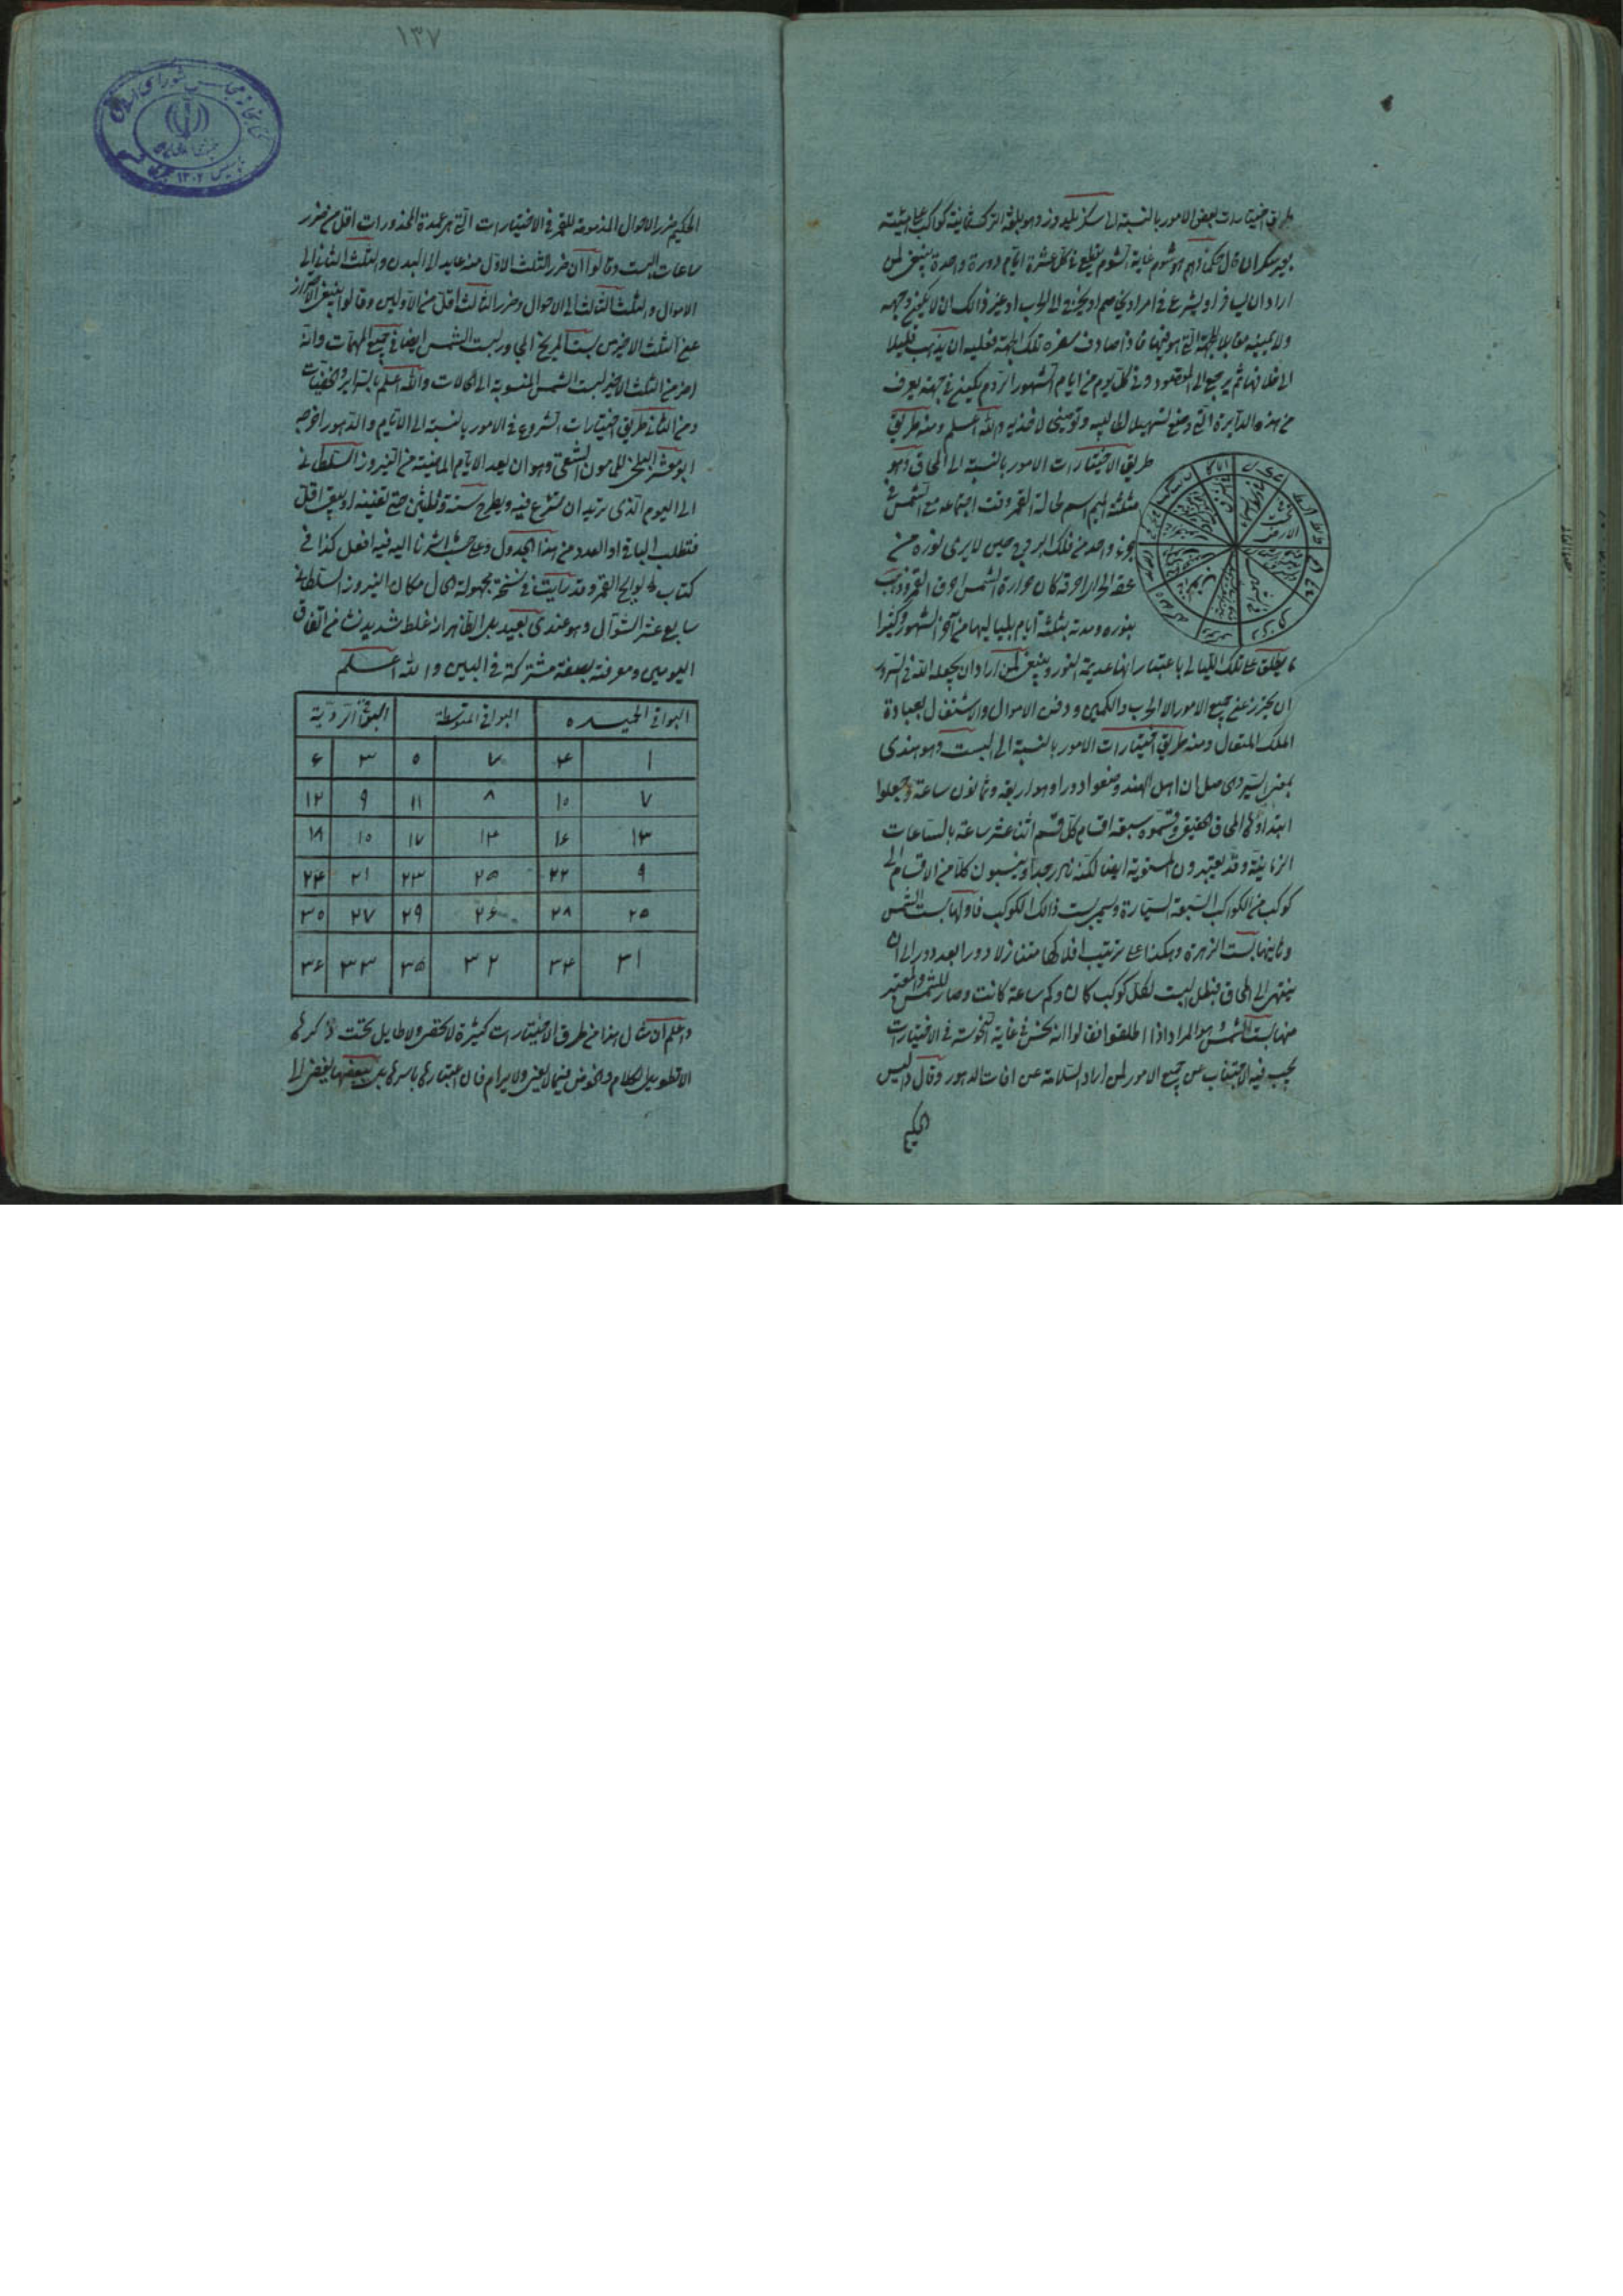 طريق اختيارات بعض الامور بالنسبة الى سكز يلدوز وهو بلغة الترك ثمانية كواكب على هيئة
اراد ان يسافر او يشرع في امر او يخرج الى الحرب او غير ذالك ان لا يكون وجهه
ولا يمينه مقابلا للجهة التي هو فيها فاذا صادف سفره تلك الجهة فعليه ان يذهب قليلا
الى خلافها ثم يرجع الى المقصود وفي كل يوم من ايام الشهور الروم يكون في جهة يعرف
من هذه الدايرة التي وضع تسهيلا لطالبيه وتوضيحا لاخذيه والله اعلم ومنه طريق
طريق الاختيارات الامور بالنسبة الى المحاق وهو
مثلثة الميم اسم لحالة القمر وقت اجتماعه مع الشمس في
جزء واحد من فلك البروج حين لا يرى نوره من
كان حرارة الشمس احرق القمر وذهب
بنوره ومدته ثلثة ايام بلياليها من آخر الشهور وكثيرا
ما يطلق على تلك الليالي باعتبار انها عديمة النور وينبغي لمن اراد ان
ان يحترز عن جميع الامور الا الحرب والكمين ودفن الاموال والاشتغال بعبادة
الملك المتعال ومنه طريق اختيارات الامور بالنسبة الى البست وهو هندي
بمعنى السير حاصل ان اهل الهند وضعوا دورا وهو اربعة وثمانون ساعة وجعلوا
ابتداؤها المحاق الحقيقي وقسموه سبعة اقسام كل قسم اثنا عشر ساعة بالساعات
الزمانية وقد يعتبرون المستوية ايضا لكنه نادر جدا وينسبون كلا من الاقسام الى
كوكب من الكواكب السبعة السيارة ويسمى بست ذالك الكوكب فاولها بست الشمس
وثانيها بست الزهرة وهكذا على ترتيب افلاكها متنازلا دورا بعد دور الى ان
ينتهى الى المحاق فبطل البست لكل كوكب كان وكم ساعة كانت وصار للشمس والمعتبر
منها بست الشمس وهو المراد اذا اطلقوا فقالوا انه نحس في غاية النحوسة في الاختيارات
يجب فيه الاجتناب عن جميع الامور لمن اراد السلامة عن افات الدهور وقال واليس
الحكيم
١٣٧
الحكيم ضرر الاحوال المذمومة للقمر في الاختيارات التي هي عمدة المحذورات اقل من ضرر
ساعات البست وقالوا ان ضرر الثلث الاول منه عايد الى البدن والثلث الثاني الى
الاموال والثلث الثالث الى الاحوال وضرر الثالث اقل من الاولين وقالوا ينبغي الاحتراز
عن الثلث الاخير من بست المريخ المجاور لبست الشمس ايضا في جميع المهمات وانه
اضر من الثلث الاخير لبست الشمس المنسوبة الى الحالات والله اعلم بالسراير والخفيات
ومن الثاني طريق اختيارات الشروع في الامور بالنسبة الى الايام والدهور اخرجه
ابو معشر البلخي للمامون وهو ان يعد الايام الماضية من النيروز السلطاني
الى اليوم الذي تريد ان تشرع فيه ويطرح ستة وثلثين حتى تفنيه او يبقى اقل
فتطلب الباقي او العدد من هذا الجدول وعلى حسب ما اشرنا اليه فيه افعل كذا في
كتاب لوايح القمر وقد رايت في نسخة مجهولة الحال مكان النيروز السلطاني
سابع عشر الشوال وهو عندي بعيد بل الظاهر انه غلط شديد نشا من اتفاق
اليومين ومعرفته بصفة مشتركة في البين والله اعلم
البواقي الجيده البواقي المتوسطة البواقي الردية
١ ۴ ٢ ٥ ٣ ۶
٧ ١٠ ٨ ١١ ٩ ١٢
١٣ ١۶ ١۴ ١٧ ١٥ ١٨
٩ ٢٢ ٢٥ ٢٣ ٢١ ٢۴
٢٥ ٢٨ ٢۶ ٢٩ ٢٧ ٣٠
٣١ ٣۴ ٣٢ ٣٥ ٣٣ ٣۶
واعلم ان مثال هذا من طرق الاختيارات كثيرة لا تحصر ولا طايل تحت ذكرها
الا تطويل الكلام والخوض فيما لا يعنى ولا يرام فان اعتبارها باسرها بل ببعضها يفضى الى